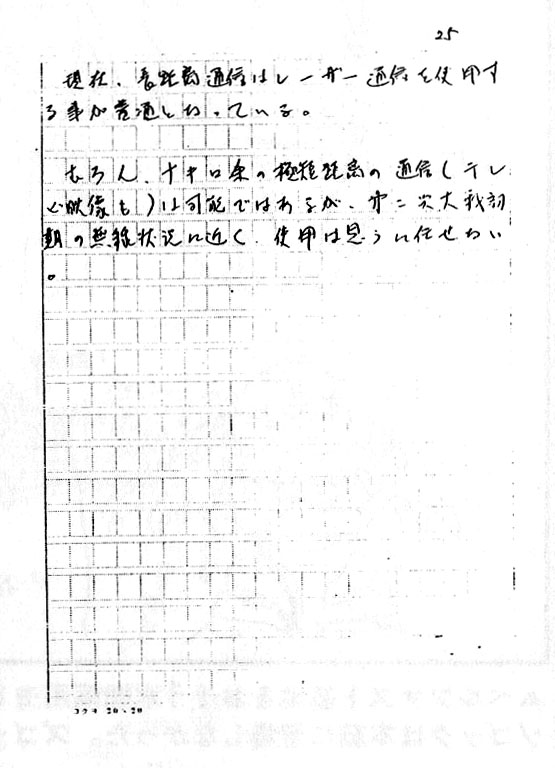 25
現在、長距離通信はレーザー通信を使用す
る事が普通となっている。
もちろん、十キロ余の極短距離の通信(テレ
ビ映像も)は可能ではあるが、第二次大戦初
期の無線状況に近く、使用は思うに任せない
。
20×20